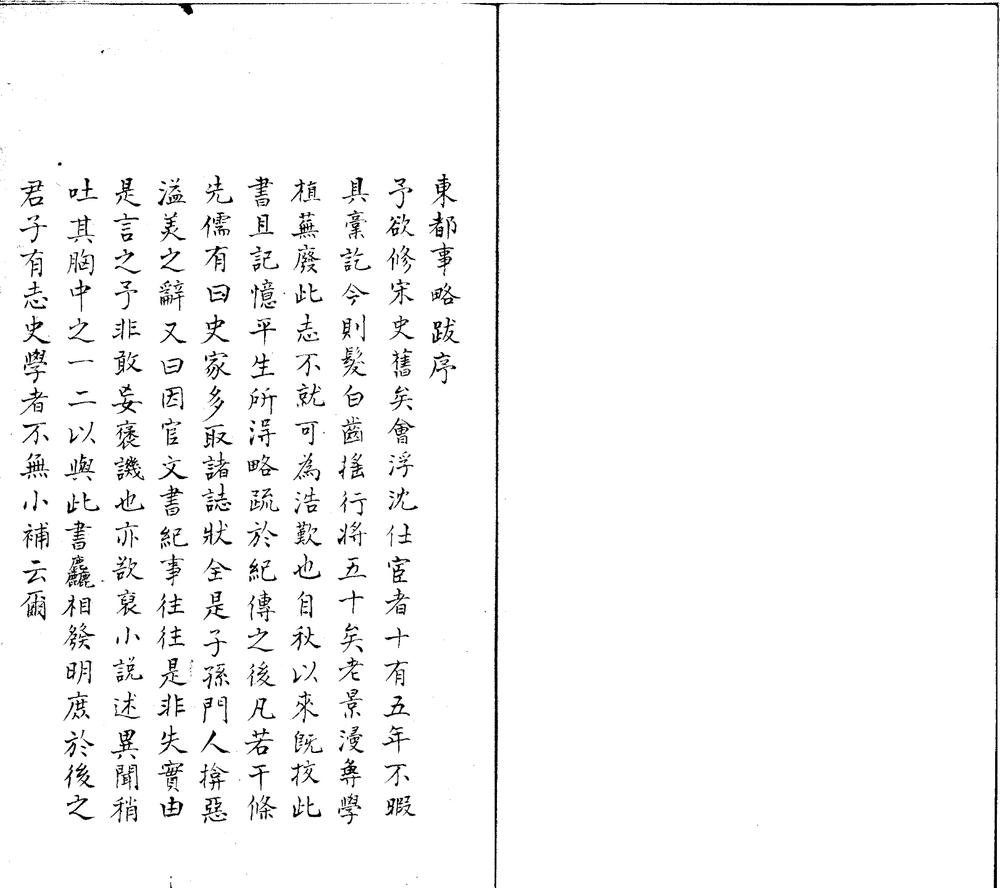 東都事略跋序
予欲修宋史舊矣會浮沈仕宦者十有五年不暇
具稾訖今則髮白齒搖行將五十矣老景漫尋學
植蕪廢此志不就可為浩歎也自秋以來既挍此
書且記憶平生所得略疏於紀傳之後凡若干條
先儒有曰史家多取諸誌狀全是子孫門人揜惡
溢美之辭又曰因官文書紀事往往是非失實由
是言之予非敢妄褒譏也亦欲裒小說述異聞稍
吐其胸中之一二以與此書麤相發明庶於後之
君子有志史學者不無小補云爾